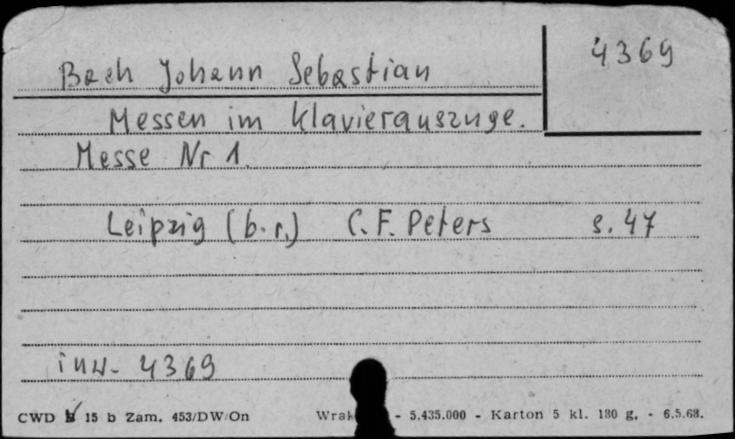 4369
Bach Johann Sebastian
Messen im Klavierauszuge.
Messe Nr 1.
Leipzig (b.r.) C.F. Peters s. 47
inw. 4369
CWD 15 b Zam. 453/DW/On - 5.435.000 - Karton 5 kl. 180 g. - 6.5.68.